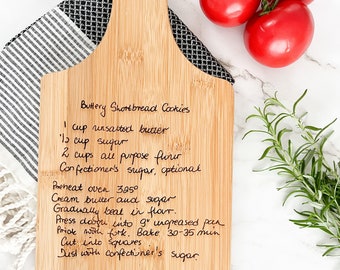 Buttery Shortbread Cookies
1 cup unsalted butter
½ cup sugar
2 cups all purpose flour
Confectioner's sugar, optional
Preheat oven 325°
Cream butter and sugar
Gradually beat in flour.
Press dough into 9" ungreased pan
Prick with fork. Bake 30-35 min
Cut into squares
Dust with confectioner's sugar